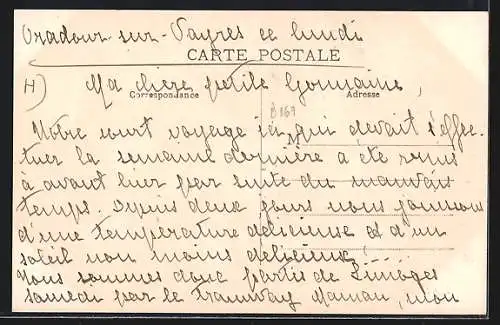 Oradour-sur-Vayres ce lundi
CARTE POSTALE
H) Ma chère petite Germaine,
Correspondance Adresse
B169
M
Notre court voyage ici qui devait s'effec-
tuer la semaine dernière a été remis
à avant hier par suite du mauvais
temps. Depuis deux jours nous jouissons
d'une température délicieuse et d'un
soleil non moins délicieux!....
Nous sommes donc partis de Limoges
samedi par le Tramway Maman, mon